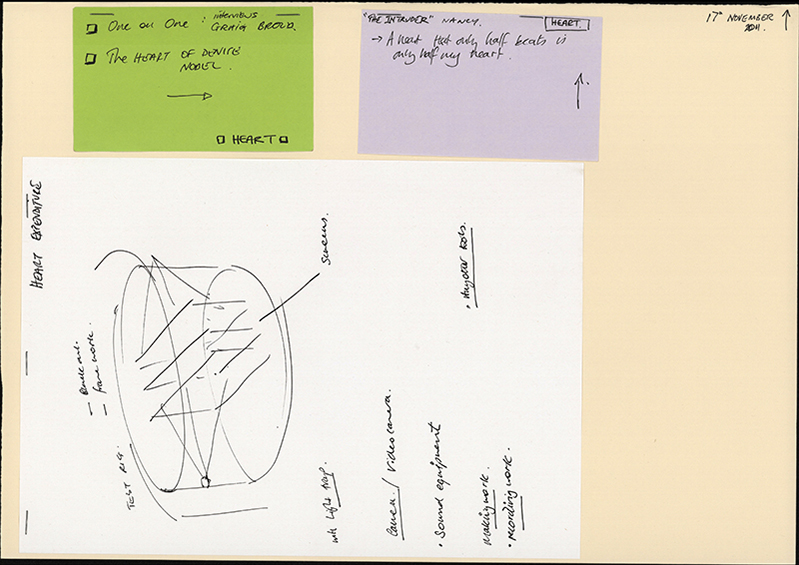 One on One : interviews
GRAIG BROAD.
The HEART OF DENISE
NODEL.
HEART
"THE INTRUDER" NANCY.
HEART.
→ A heart that only half beats is
only half my heart.
17th NOVEMBER
2011.
HEART EXPENDITURE
Screens.
frame work.
TEST RIG.
with light trap.
camera / video camera.
• Sound equipment
making work.
• recording work.